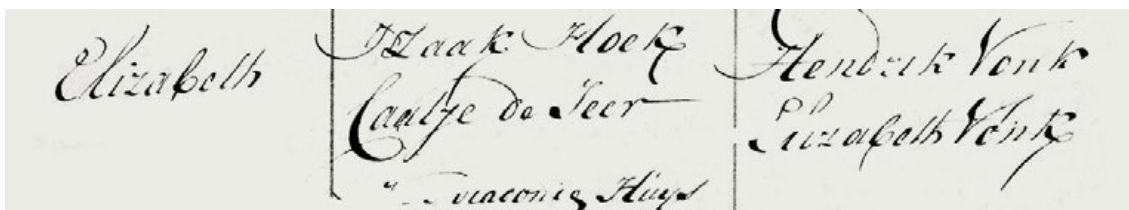 Elizabeth
Izaak Hoek
Caatje de Leer
Diaconie Huys
Hendrik Vonk
Elizabeth Vonk